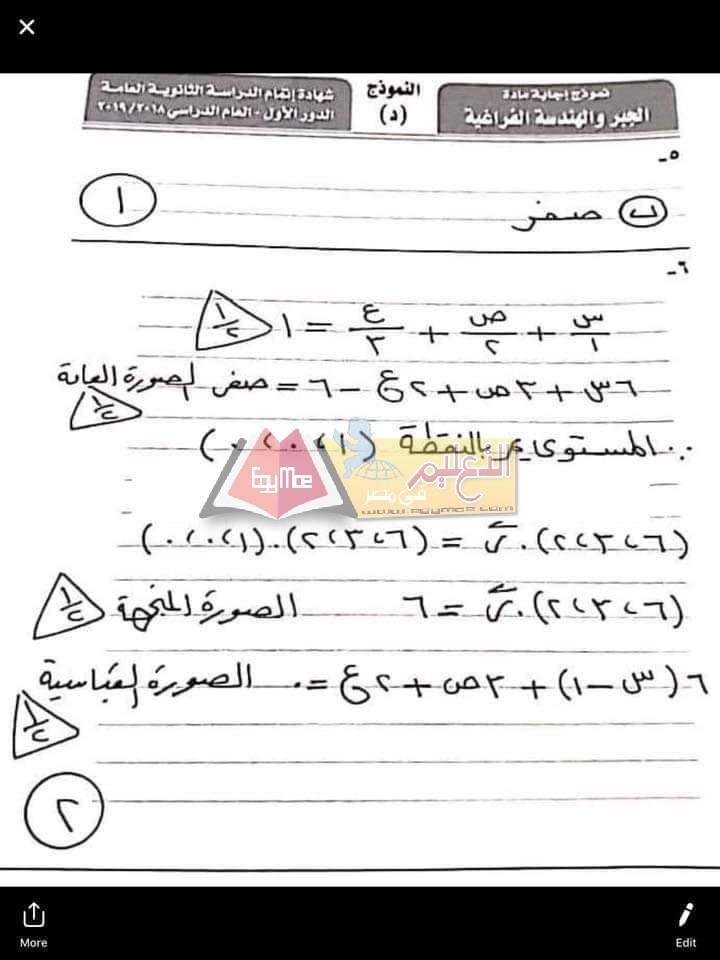 نموذج إجابة مادة
الجبر والهندسة الفراغية
النموذج
(د)
شهادة إتمام الدراسة الثانوية العامة
الدور الأول - العام الدراسى ٢٠١٩/٢٠١٨
٥-
ب صفر
١
٦-
س/١ + ص/٢ + ع/٣ = ١
١/٢
٦س + ٣ص + ٢ع - ٦ = صفر الصورة العامة
١/٢
∴ المستوى يمر بالنقطة (١، ٠، ٠)
التعليم
فى مصر
EgyMoe
www.egymoe.com
(٦، ٣، ٢). ر = (٦، ٣، ٢). (١، ٠، ٠)
(٦، ٣، ٢). ر = ٦ الصورة المتجهة
١/٢
٦(س - ١) + ٣ص + ٢ع = ٠ الصورة القياسية
١/٢
٢
More
Edit